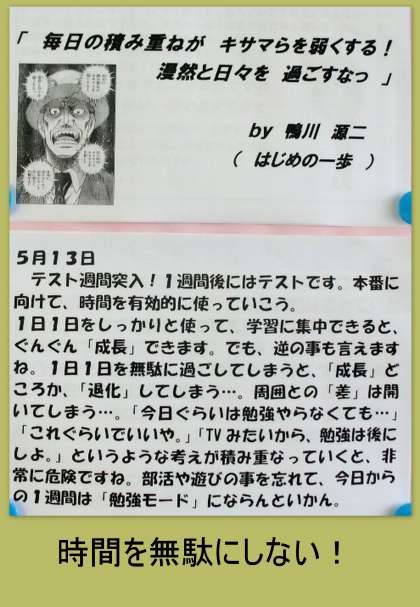 「　毎日の積み重ねが　キサマらを弱くする！
漫然と日々を　過ごすなっ　」
by　鴨川　源二
（　はじめの一歩　）
５月１３日
テスト週間突入！１週間後にはテストです。本番に
向けて、時間を有効的に使っていこう。
１日１日をしっかりと使って、学習に集中できると、
ぐんぐん「成長」できます。でも、逆の事も言えます
ね。１日１日を無駄に過ごしてしまうと、「成長」ど
ころか、「退化」してしまう…。周囲との「差」は開
いてしまう…。「今日ぐらいは勉強やらなくても…」
「これぐらいでいいや。」「TVみたいから、勉強は後に
しよ。」というような考えが積み重なっていくと、非
常に危険ですね。部活や遊びの事を忘れて、今日から
の１週間は「勉強モード」にならんといかん。
時間を無駄にしない！